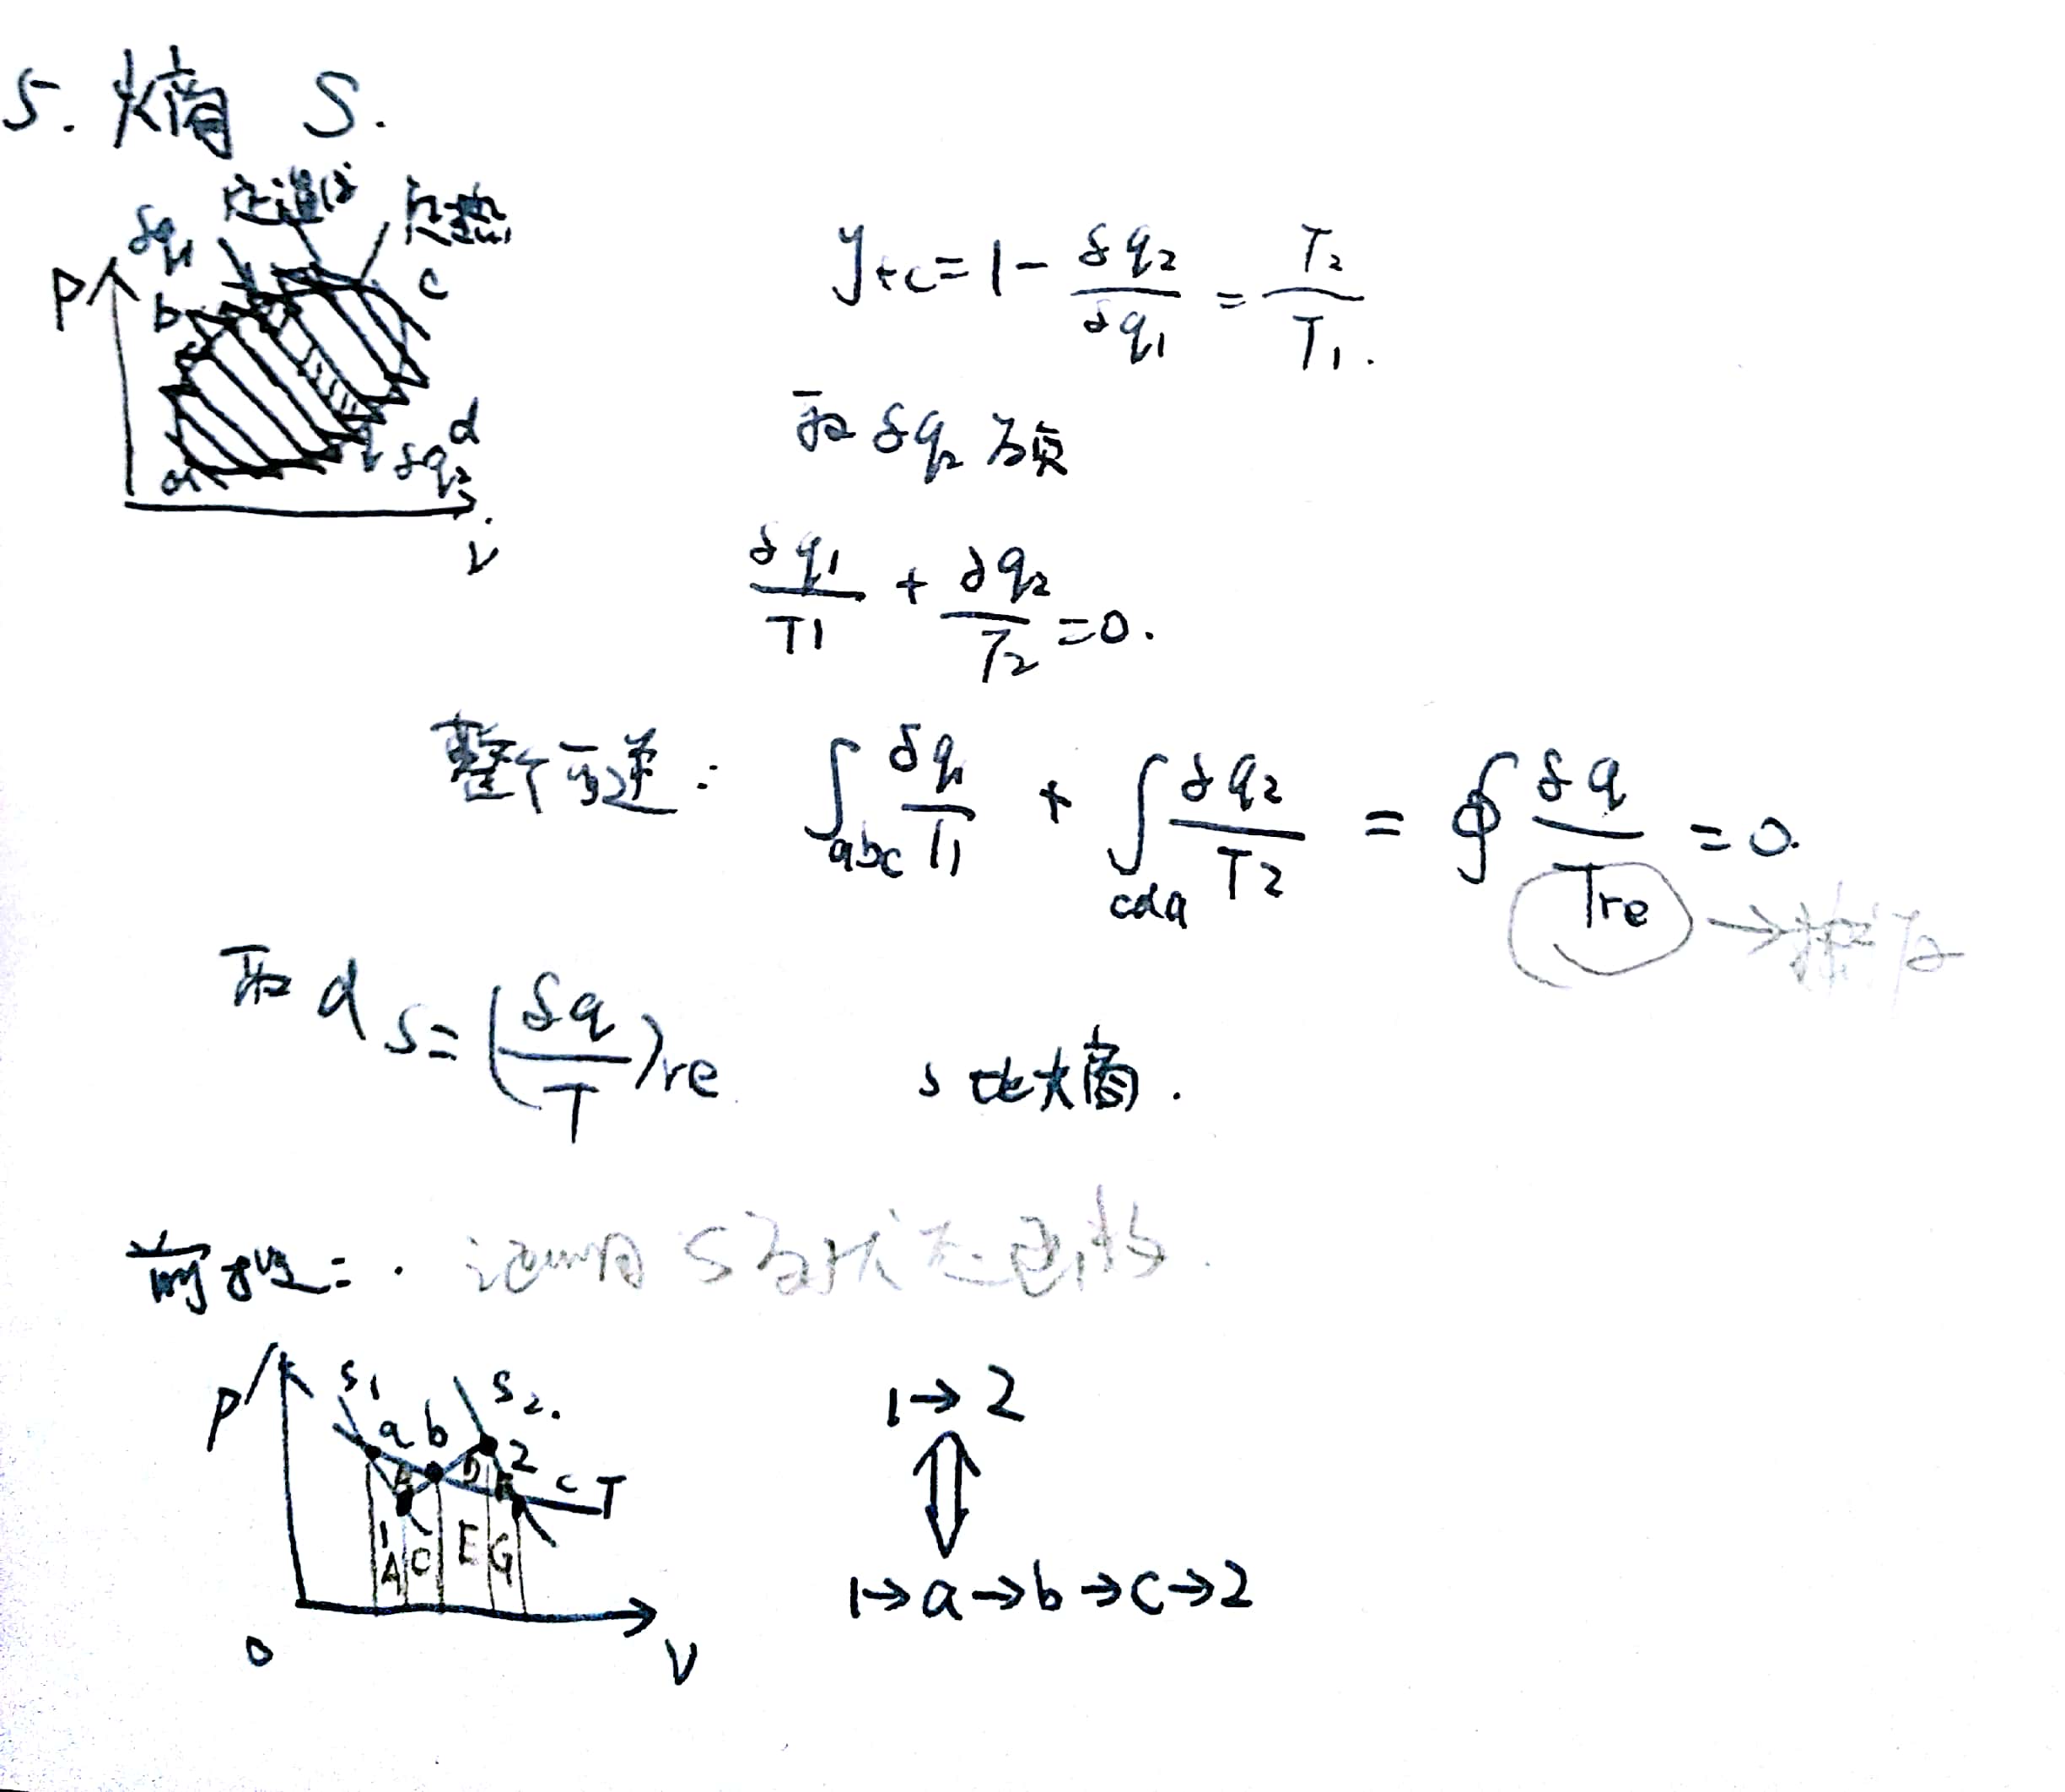 5. 熵 S.
δq1
绝热
P
b
c
a
d
δq2
V
ηtc = 1 - δq2/δq1 = T2/T1.
取 δq2 为负
δq1/T1 + δq2/T2 = 0.
整个可逆: ∫abc δq1/T1 + ∫cda δq2/T2 = ∮ δq/Tre = 0.
取 ds = (δq/T)re s 比熵.
证明 S为状态
P
S1
S2.
a b
2
c T
1
A C E G
O
V
1→2
⇕
1→a→b→c→2